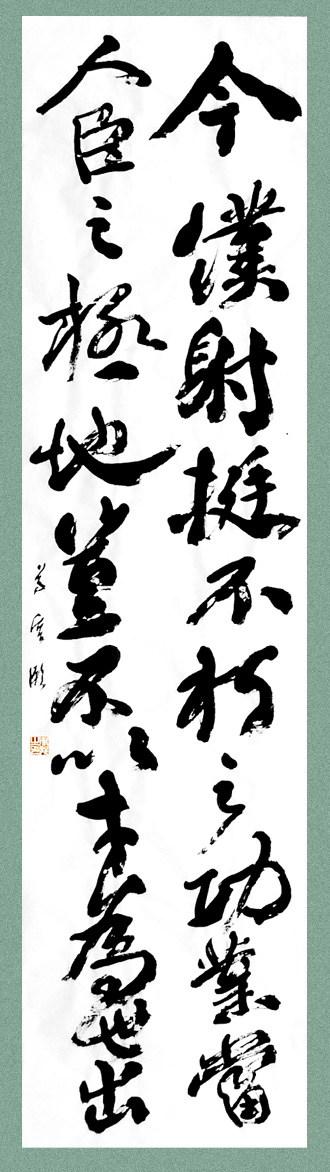 今僕射挺不朽之功業當
人臣之極地豈不以才為世出